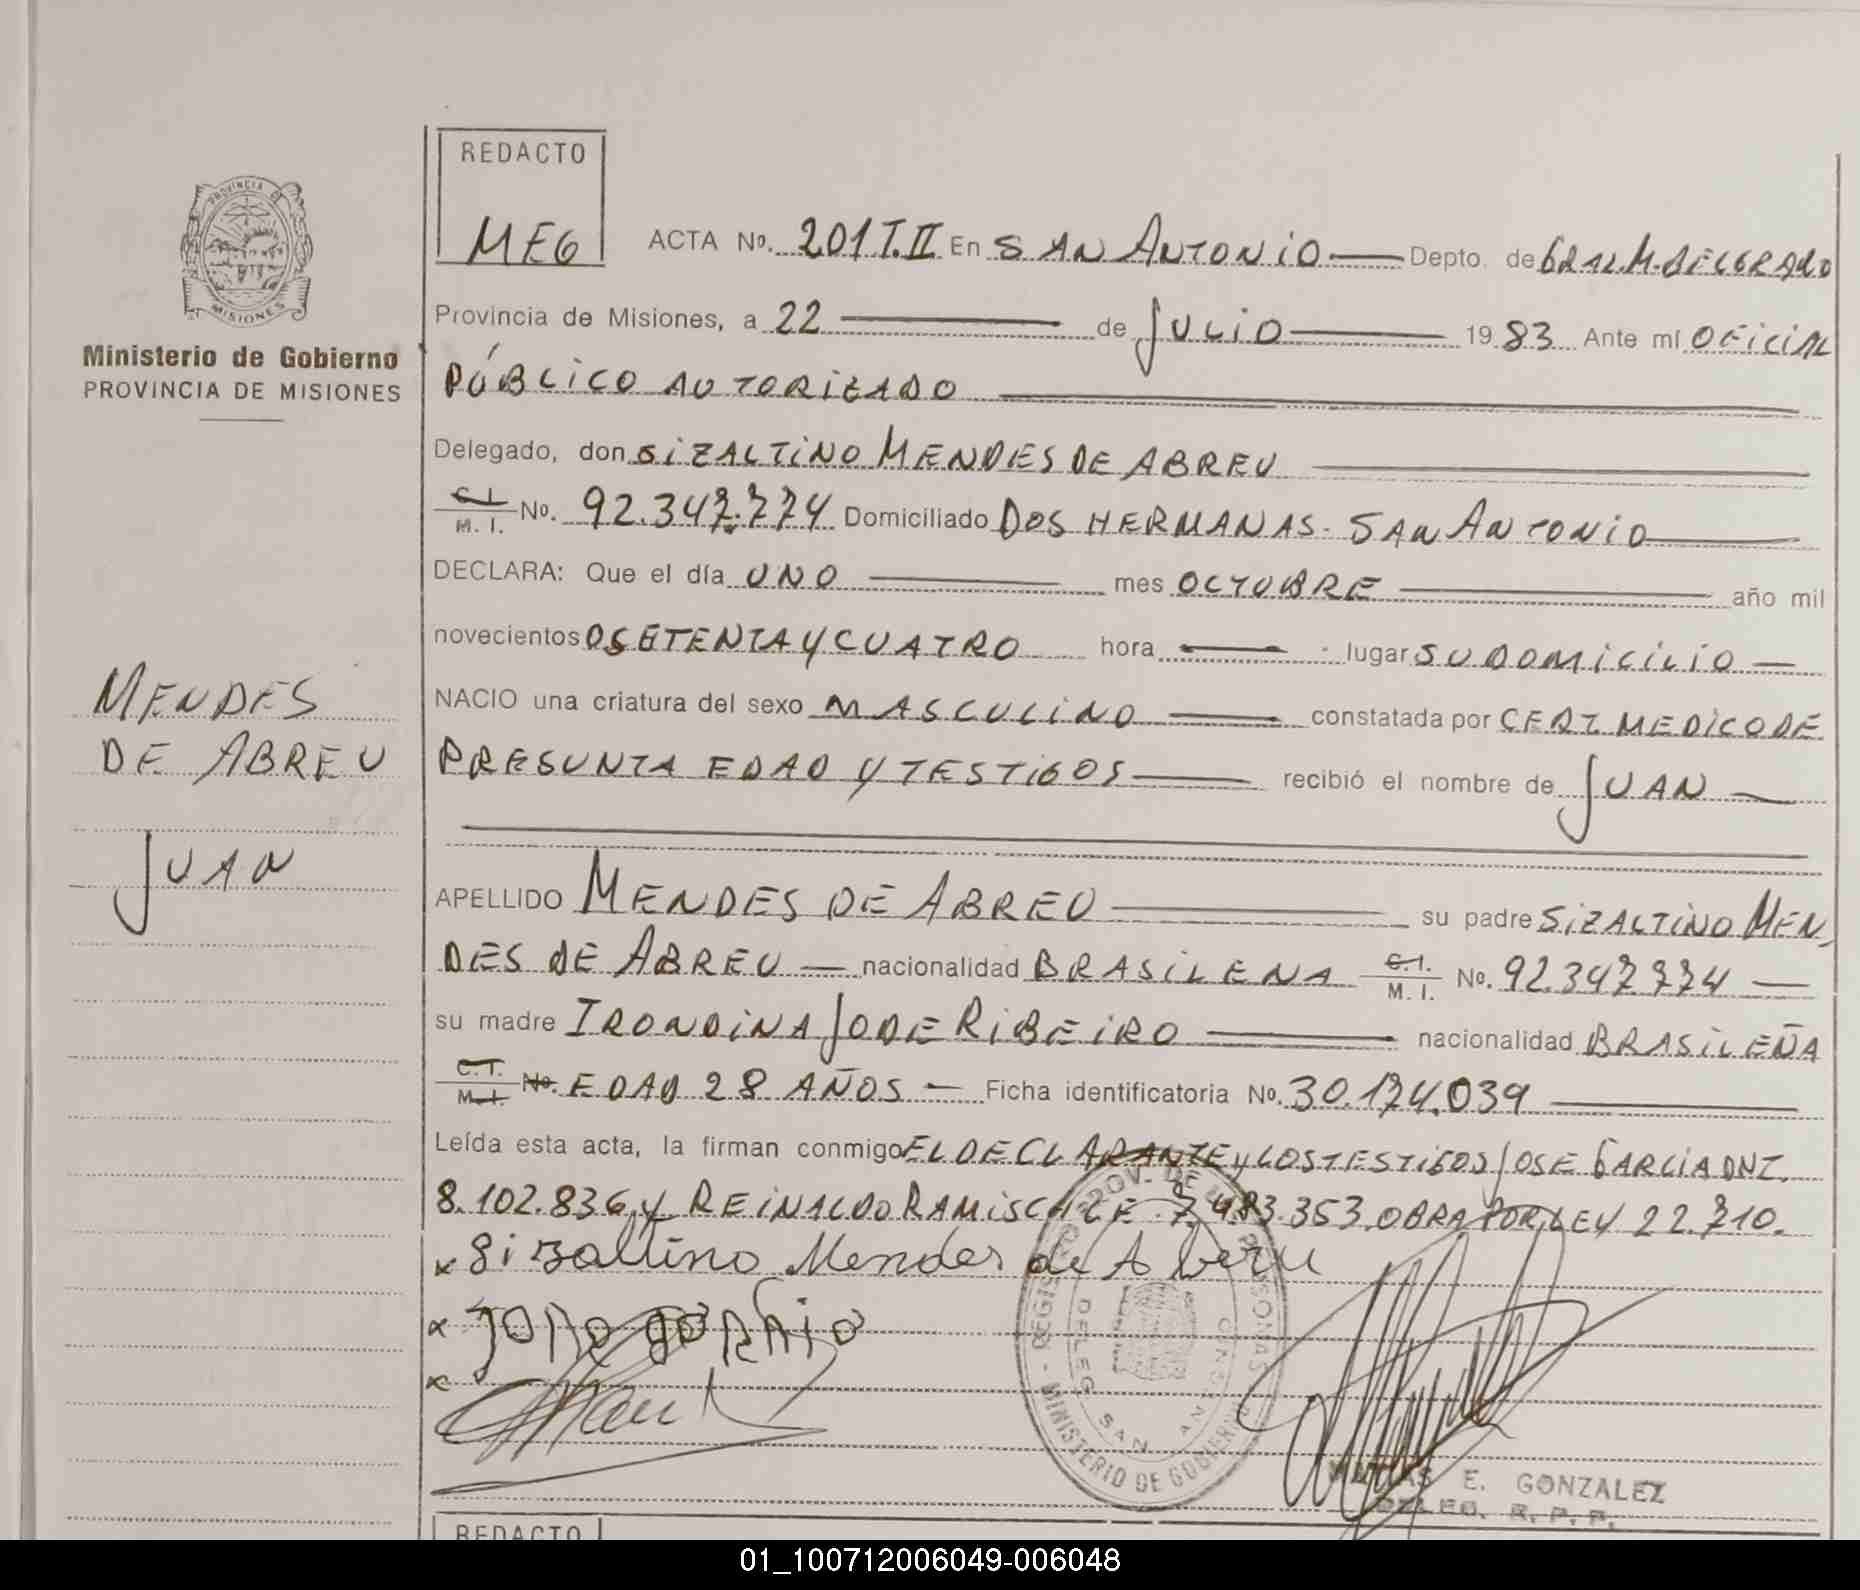 REDACTO
MEG
PROVINCIA DE
MISIONES
Ministerio de Gobierno
PROVINCIA DE MISIONES
ACTA No. 201 T.II En SAN ANTONIO — Depto. de GRAL. M. BELGRANO
Provincia de Misiones, a 22 — de JULIO — 1983 Ante mí OFICIAL
PÚBLICO AUTORIZADO —
Delegado, don SIZALTINO MENDES DE ABREU —
C.I. / M. I. No. 92.347.774 Domiciliado DOS HERMANAS - SAN ANTONIO —
DECLARA: Que el día UNO — mes OCTUBRE — año mil
novecientos SETENTA Y CUATRO hora — lugar SU DOMICILIO —
NACIO una criatura del sexo MASCULINO — constatada por CERT. MEDICO DE
PRESUNTA EDAD Y TESTIGOS — recibió el nombre de JUAN —
MENDES
DE ABREU
JUAN
APELLIDO MENDES DE ABREU — su padre SIZALTINO MEN-
DES DE ABREU — nacionalidad BRASILENA C.I. / M. I. No. 92.347.774 —
su madre IRONDINA JODE RIBEIRO — nacionalidad BRASILEÑA
C.I. / M.I. No. EDAD 28 AÑOS — Ficha identificatoria No. 30.174.039 —
Leída esta acta, la firman conmigo EL DECLARANTE y LOS TESTIGOS JOSE GARCIA DNI.
8.102.836 y REINALDO RAMISCH LE 7.483.353. OBRA POR LEY 22.710.
x Sizaltino Mendes de Abreu
x
x
REGISTRO PROV. DE LAS PERSONAS
DELEG. SAN ANTONIO
MINISTERIO DE GOBIERNO
MATIAS E. GONZALEZ
DELEG. R. P. P.
REDACTO
01_100712006049-006048